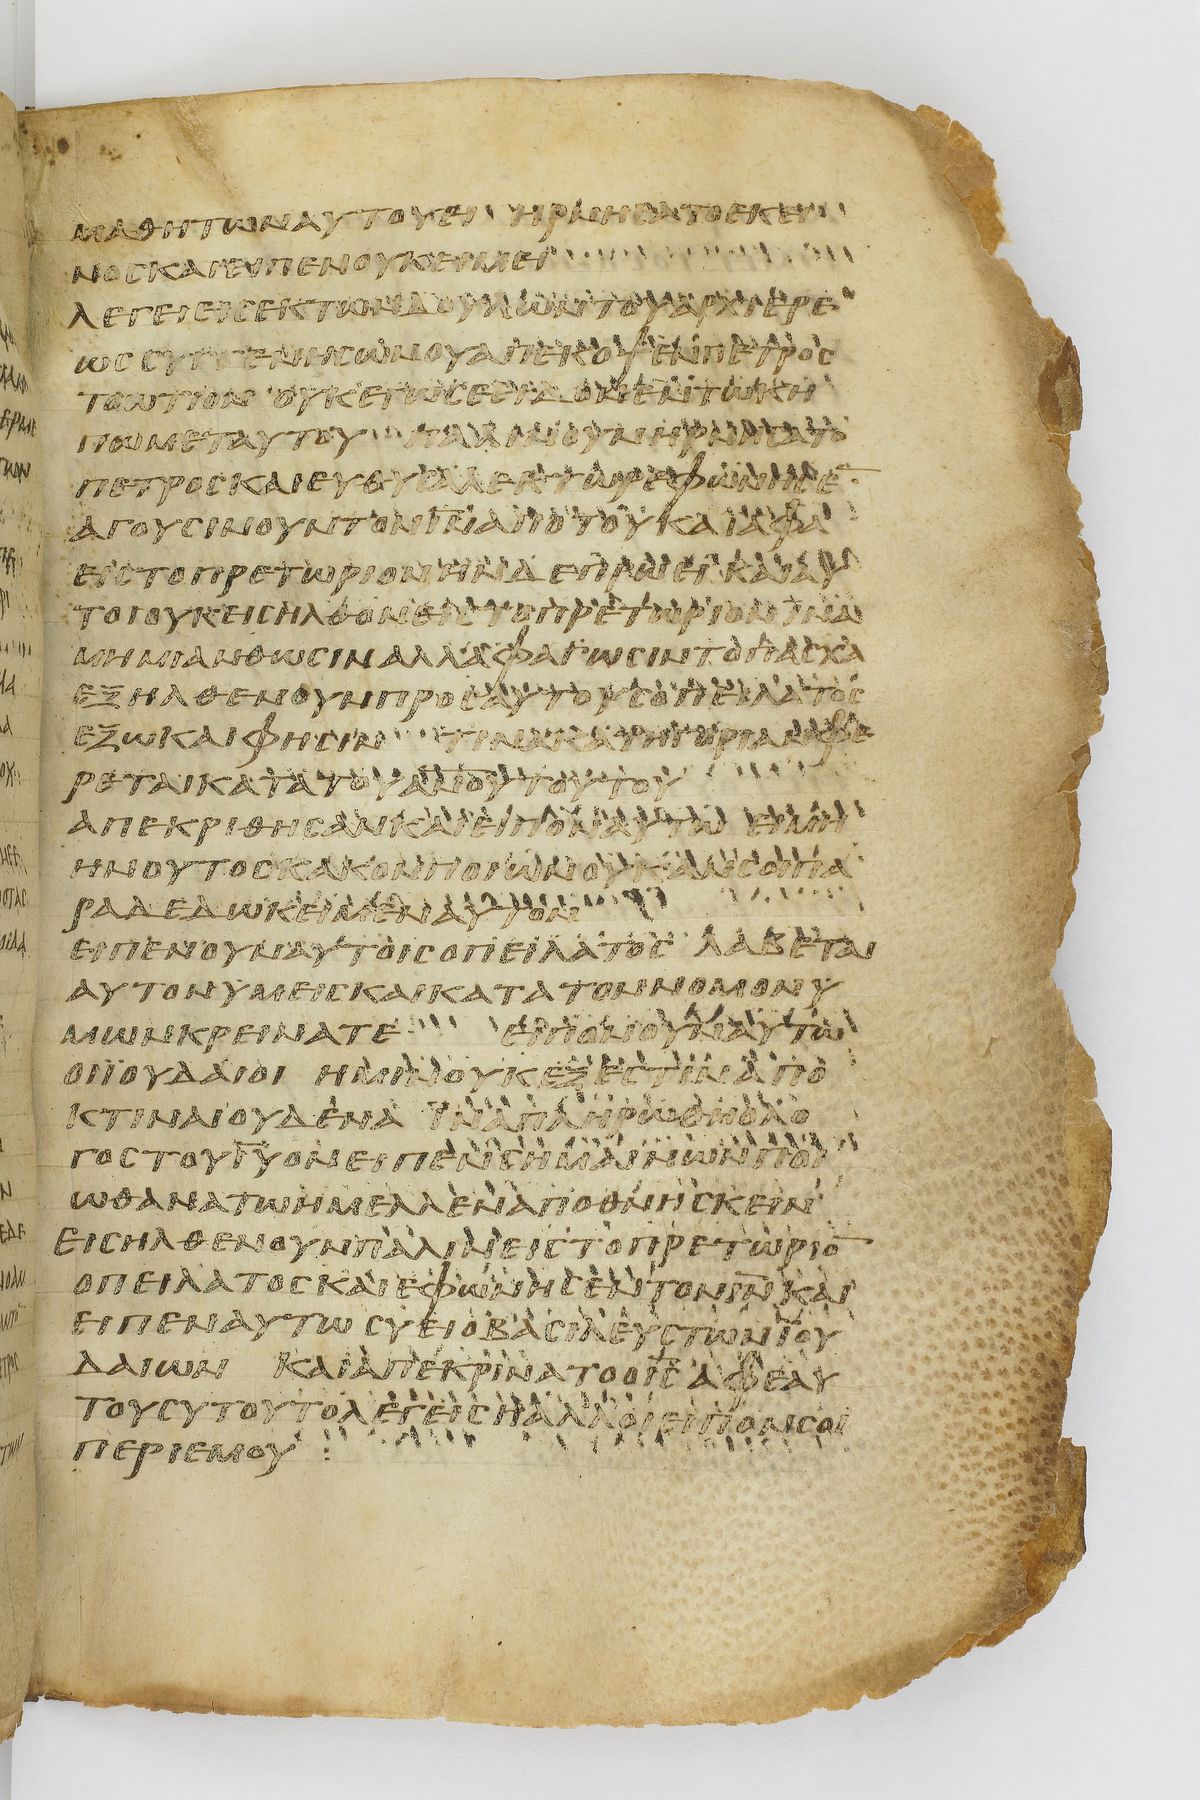 ΜΑΘΗΤΩΝΑΥΤΟΥΕΙ ΗΡΝΗϹΑΤΟΕΚΕΙ
ΝΟϹΚΑΙΕΙΠΕΝΟΥΚΕΙΜΕΙ
ΛΕΓΕΙΕΙϹΕΚΤΩΝΔΟΥΛΩΝΤΟΥΑΡΧΙΕΡΕ
ΩϹϹΥΓΓΕΝΗϹΩΝΟΥΑΠΕΚΟΨΕΝΠΕΤΡΟϹ
ΤΟΩΤΙΟΝ ΟΥΚΕΓΩϹΕΕΙΔΟΝΕΝΤΩΚΗ
ΠΩΜΕΤΑΥΤΟΥ ΠΑΛΙΝΟΥΝΗΡΝΗϹΑΤΟ
ΠΕΤΡΟϹΚΑΙΕΥΘΥϹΑΛΕΚΤΩΡΕΦΩΝΗϹΕ̅
ΑΓΟΥϹΙΝΟΥΝΤΟΝΙ̅Ν̅ΑΠΟΤΟΥΚΑΙΑΦΑ
ΕΙϹΤΟΠΡΕΤΩΡΙΟΝΗΝΔΕΠΡΩΕΙΚΑΙΑΥ
ΤΟΙΟΥΚΕΙϹΗΛΘΟΝΕΙϹΤΟΠΡΕΤΩΡΙΟΝΪΝΑ
ΜΗΜΙΑΝΘΩϹΙΝΑΛΛΑΦΑΓΩϹΙΝΤΟΠΑϹΧΑ
ΕΞΗΛΘΕΝΟΥΝΠΡΟϹΑΥΤΟΥϹΟΠΕΙΛΑΤΟϹ
ΕΞΩΚΑΙΦΗϹΙΝ ΤΙΝΑΚΑΤΗΓΟΡΙΑΝΦΕ
ΡΕΤΑΙΚΑΤΑΤΟΥΑ̅Ν̅Ο̅Υ̅ΤΟΥΤΟΥ
ΑΠΕΚΡΙΘΗϹΑΝΚΑΙΕΙΠΟΝΑΥΤΩ ΕΙΜΗ
ΗΝΟΥΤΟϹΚΑΚΟΝΠΟΙΩΝΟΥΚΑΝϹΟΙΠΑ
ΡΑΔΕΔΩΚΕΙΜΕΝΑΥΤΟΝ
ΕΙΠΕΝΟΥΝΑΥΤΟΙϹΟΠΕΙΛΑΤΟϹ ΛΑΒΕΤΑΙ
ΑΥΤΟΝΥΜΕΙϹΚΑΙΚΑΤΑΤΟΝΝΟΜΟΝΥ
ΜΩΝΚΡΕΙΝΑΤΕ ΕΙΠΟΝΟΥΝΑΥΤΩ
ΟΙΪΟΥΔΑΙΟΙ ΗΜΙΝΟΥΚΕΞΕϹΤΙΝΑΠΟ
ΚΤΙΝΑΙΟΥΔΕΝΑ ΪΝΑΠΛΗΡΩΘΗΟΛΟ
ΓΟϹΤΟΥΙ̅Υ̅ΟΝΕΙΠΕΝϹΗΜΑΙΝΩΝΠΟΙ
ΩΘΑΝΑΤΩΗΜΕΛΛΕΝΑΠΟΘΝΗϹΚΕΙΝ
ΕΙϹΗΛΘΕΝΟΥΝΠΑΛΙΝΕΙϹΤΟΠΡΕΤΩΡΙΟ̅
ΟΠΕΙΛΑΤΟϹΚΑΙΕΦΩΝΗϹΕΝΤΟΝΙ̅Ν̅ΚΑΙ
ΕΙΠΕΝΑΥΤΩϹΥΕΙΟΒΑϹΙΛΕΥϹΤΩΝΪΟΥ
ΔΑΙΩΝ ΚΑΙΑΠΕΚΡΙΝΑΤΟΟΙ̅Ϲ̅ΑΦΕΑΥ
ΤΟΥϹΥΤΟΥΤΟΛΕΓΕΙϹΗΑΛΛΟΙΕΙΠΟΝϹΟΙ
ΠΕΡΙΕΜΟΥ :